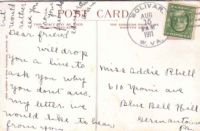 POST CARD
BOLIVAR,
AUG
15
1911
W. VA.
Dear friend
will drop
you a line to
ask you why
you dont ans.
my letter we
would like to hear
from you
Miss Addie Rhell
610 Morris ave
Blue Bell Hill
Germantown
Pa